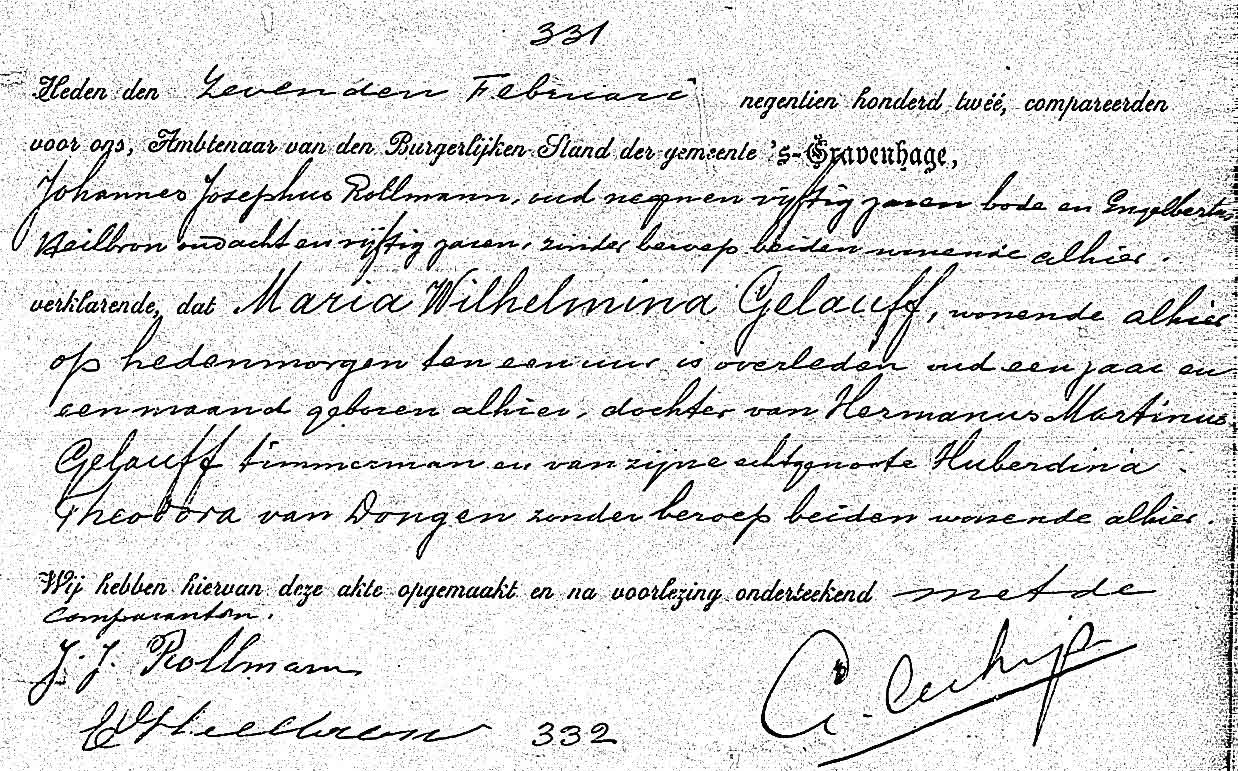 331
Heden den Zevenden Februari negentien honderd twéé, compareerden
voor ons, Ambtenaar van den Burgerlijken Stand der gemeente 's-Gravenhage,
Johannes Josephus Rollmann, oud negenen vijftig jaren bode en Engelbertus
Heilbron oud acht en vijftig jaren, zonder beroep beiden wonende alhier.
verklarende, dat Maria Wilhelmina Gelauff, wonende alhier
op hedenmorgen ten een uur is overleden oud een jaar en
een maand geboren alhier, dochter van Hermanus Martinus
Gelauff timmerman en van zijne echtgenoote Huberdina
Theodora van Dongen zonder beroep beiden wonende alhier.
Wij hebben hiervan deze akte opgemaakt en na voorlezing onderteekend met de
Comparanten.
J. J. Rollmann
Heilbron
332